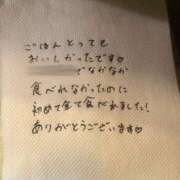 ごはんとっても
おいしかったです♡
でなかなか
食べれなかったのに
初めて全て食べれました!
ありがとうございます♡